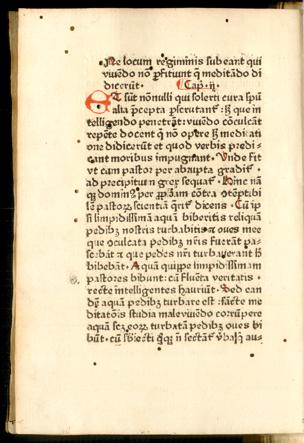 Ne locum regiminis subeant qui
viuẽdo nõ ꝑficiunt q̃ meditãdo di
dicerũt. Cap. ij.
Et sũt nõnulli qui solerti cura spũ
alia p̃cepta pscrutant᷑: sꝫ que in
telligendo penetrãt: viuẽdo cõculcãt
repẽte docent q̃ nõ opere sꝫ meditati
one didicerũt et quod verbis predi-
cant moribus impugnant. Unde fit
vt cum pastor per abrupta gradit᷑.
ad precipitiũ grex sequat᷑. Hinc nã
qꝫ dominꝰ per ꝓphetam
lẽ pastoꝝ scientiã dicens. Cũ ip
si limpidissimã aquã biberitis reliquã
pedibꝫ nostris turbabitis et oues mee
que ꝓculcata pedibꝫ nr̃is fuerãt pa-
scebãt et que pedes nr̃i turbauerant
bibebãt. Aquã quippe limpidissimam
pastores bibunt: cũ fluẽta veritatis
recte intelligentes hauriũt. Sed ean
dẽ aquã pedibꝫ turbare est: sancte me
ditatõis studia male viuẽdo corrũpere
aquã turbatã pedibꝫ oues bi
bũt: cũ sectant᷑ au-